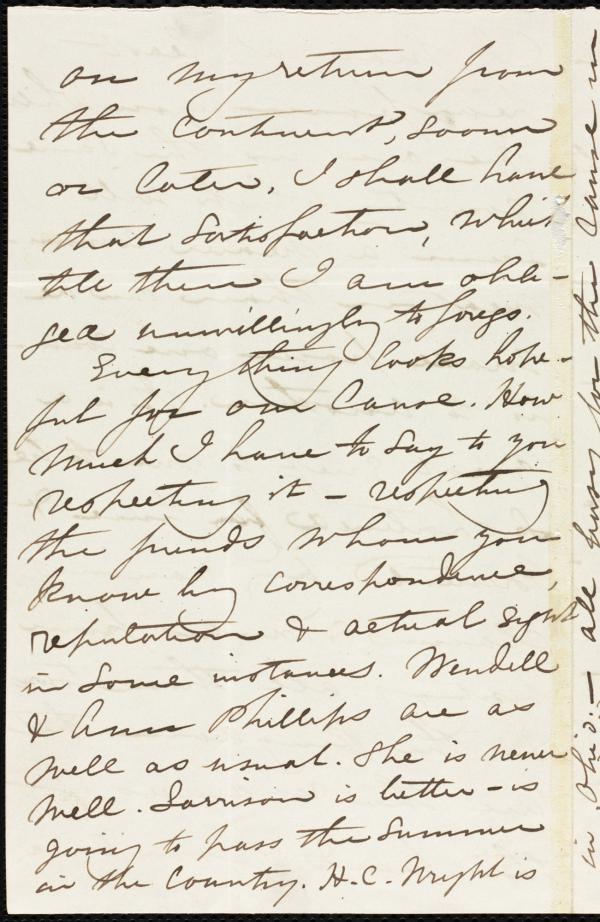 on my return from
the Continent, sooner
or later, I shall have
that satisfaction, which
till then I am obli-
ged unwillingly to forego.
Everything looks hope-
ful for our Cause. How
much I have to say to you
respecting it - respecting
the friends whom you
know by correspondence,
reputation & actual sight
in some instances. Wendell
& Ann Phillips are as
well as usual. She is never
well. Garrison is better - is
going to pass the Summer
in the Country. H. C. Wright is
in Ohio. - all busy for the cause in